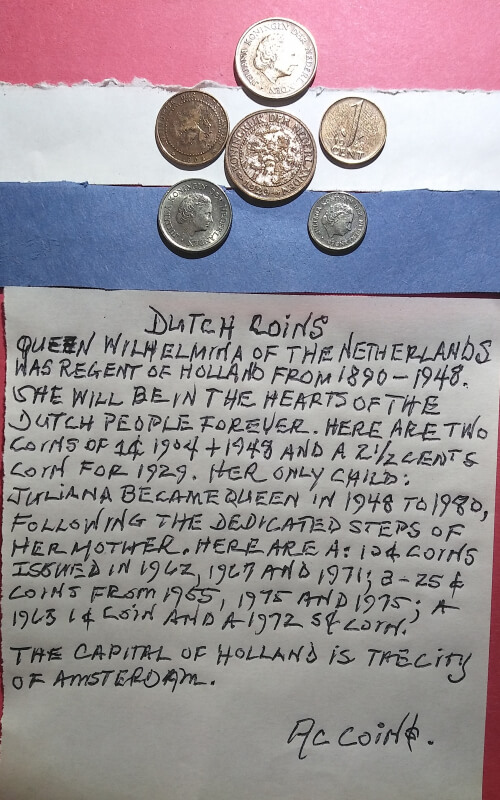 JULIANA KONINGIN DER NEDERLANDEN
1
CENT
KONINGRIJK DER NEDERLANDEN
1929
DUTCH COINS
QUEEN WILHELMINA OF THE NETHERLANDS
WAS REGENT OF HOLLAND FROM 1890-1948.
SHE WILL BE IN THE HEARTS OF THE
DUTCH PEOPLE FOREVER. HERE ARE TWO
COINS OF 1¢ 1904 + 1948 AND A 2 1/2 CENTS
COIN FOR 1929. HER ONLY CHILD:
JULIANA BECAME QUEEN IN 1948 TO 1980,
FOLLOWING THE DEDICATED STEPS OF
HER MOTHER. HERE ARE A: 10¢ COINS
ISSUED IN 1962, 1967 AND 1971; 3-25¢
COINS FROM 1955, 1975 AND 1975; A
1963 1¢ COIN AND A 1972 5¢ COIN.
THE CAPITAL OF HOLLAND IS THE CITY
OF AMSTERDAM.
AC COIN¢.